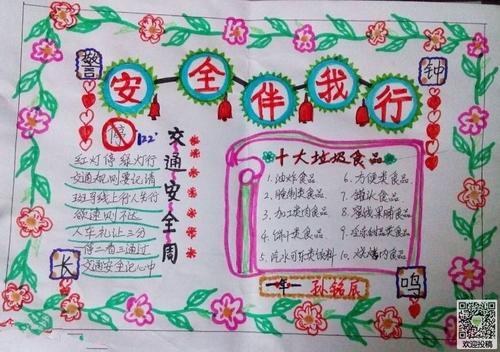 安全伴我行
警
钟
长
鸣
停
122
交通安全周
红灯停 绿灯行
交通规则要记清
斑马线上行人先行
欲速则不达
人车礼让三分
一停二看三通过
交通安全记心中
十大垃圾食品
1.油炸食品
2.腌制类食品
3.加工类肉食品
4.饼干类食品
5.汽水可乐类饮料
6.方便类食品
7.罐头食品
8.蜜饯果脯食品
9.冷冻甜品类食品
10.烧烤肉食品
孙铭辰
欢迎投稿